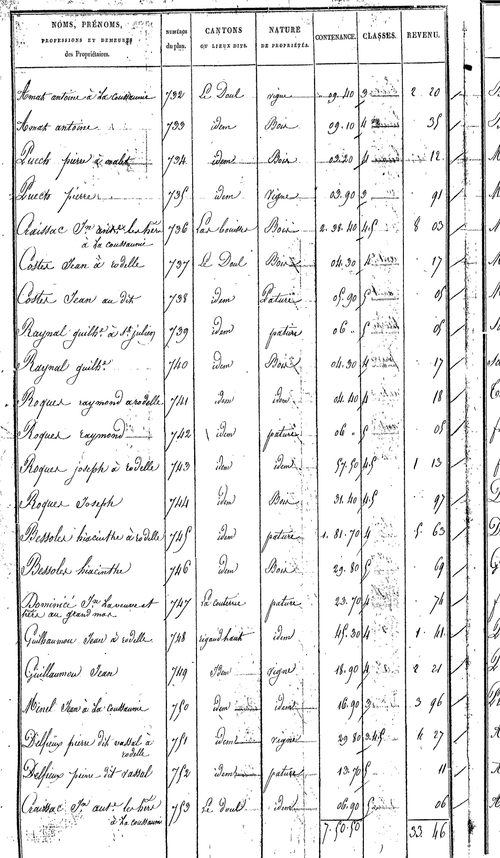 NOMS, PRÉNOMS, PROFESSIONS ET DEMEURES des Propriétaires. NUMÉROS du plan. CANTONS OU LIEUX DITS. NATURE DE PROPRIÉTÉS. CONTENANCE. CLASSES. REVENU.
Amat antoine à La coussaunie 732 Le Doul vigne 09.40 3 2 20
Amat antoine 733 idem Bois 09.10 4 35
Puech pierre à 734 idem Bois 03.20 4 12
Puech pierre 735 idem Vigne 03.90 3 91
Craissac Jn antne les hers 736 Bois 2.38.40 4.5 8 03
à La coussaunie
Costes Jean à rodelle 737 Le Doul Bois 04.30 4 17
Costes Jean au dit 738 idem Pature 05.90 5 05
Raynal guilhe à St julien 739 idem pature 06 5 05
Raynal guilhe 740 idem Bois 04.30 4 17
Roques raymond à rodelle 741 idem idem 04.40 4 18
Roques raymond 742 idem pature 06 5 05
Roques joseph à rodelle 743 idem idem 57.50 4.5 1 13
Roques Joseph 744 idem Bois 31.40 4.5 97
Bessoles hiacinthe à rodelle 745 idem pature 1.81.70 4 5 63
Bessoles hiacinthe 746 idem Bois 29.80 5 69
Dominicé Jn la veuve et 747 La couterie pature 23.70 4 74
hers au grand mas
Guilhaumou Jean à rodelle 748 rigaud haut idem 45.30 4 1 41
Guillaumou Jean 749 idem vigne 18.90 4 2 21
Minel Jean à La coussaunie 750 idem idem 16.90 3 3 96
Delfieux pierre dit vassal à 751 idem vigne 29 80 3.4.5 4 27
rodelle
Delfieux pierre dit vassal 752 idem pature 13.70 5 11
Craissac Jn antne les hers 753 Le doul idem 06.90 5 06
à La coussaunie
7.50.50 33 46